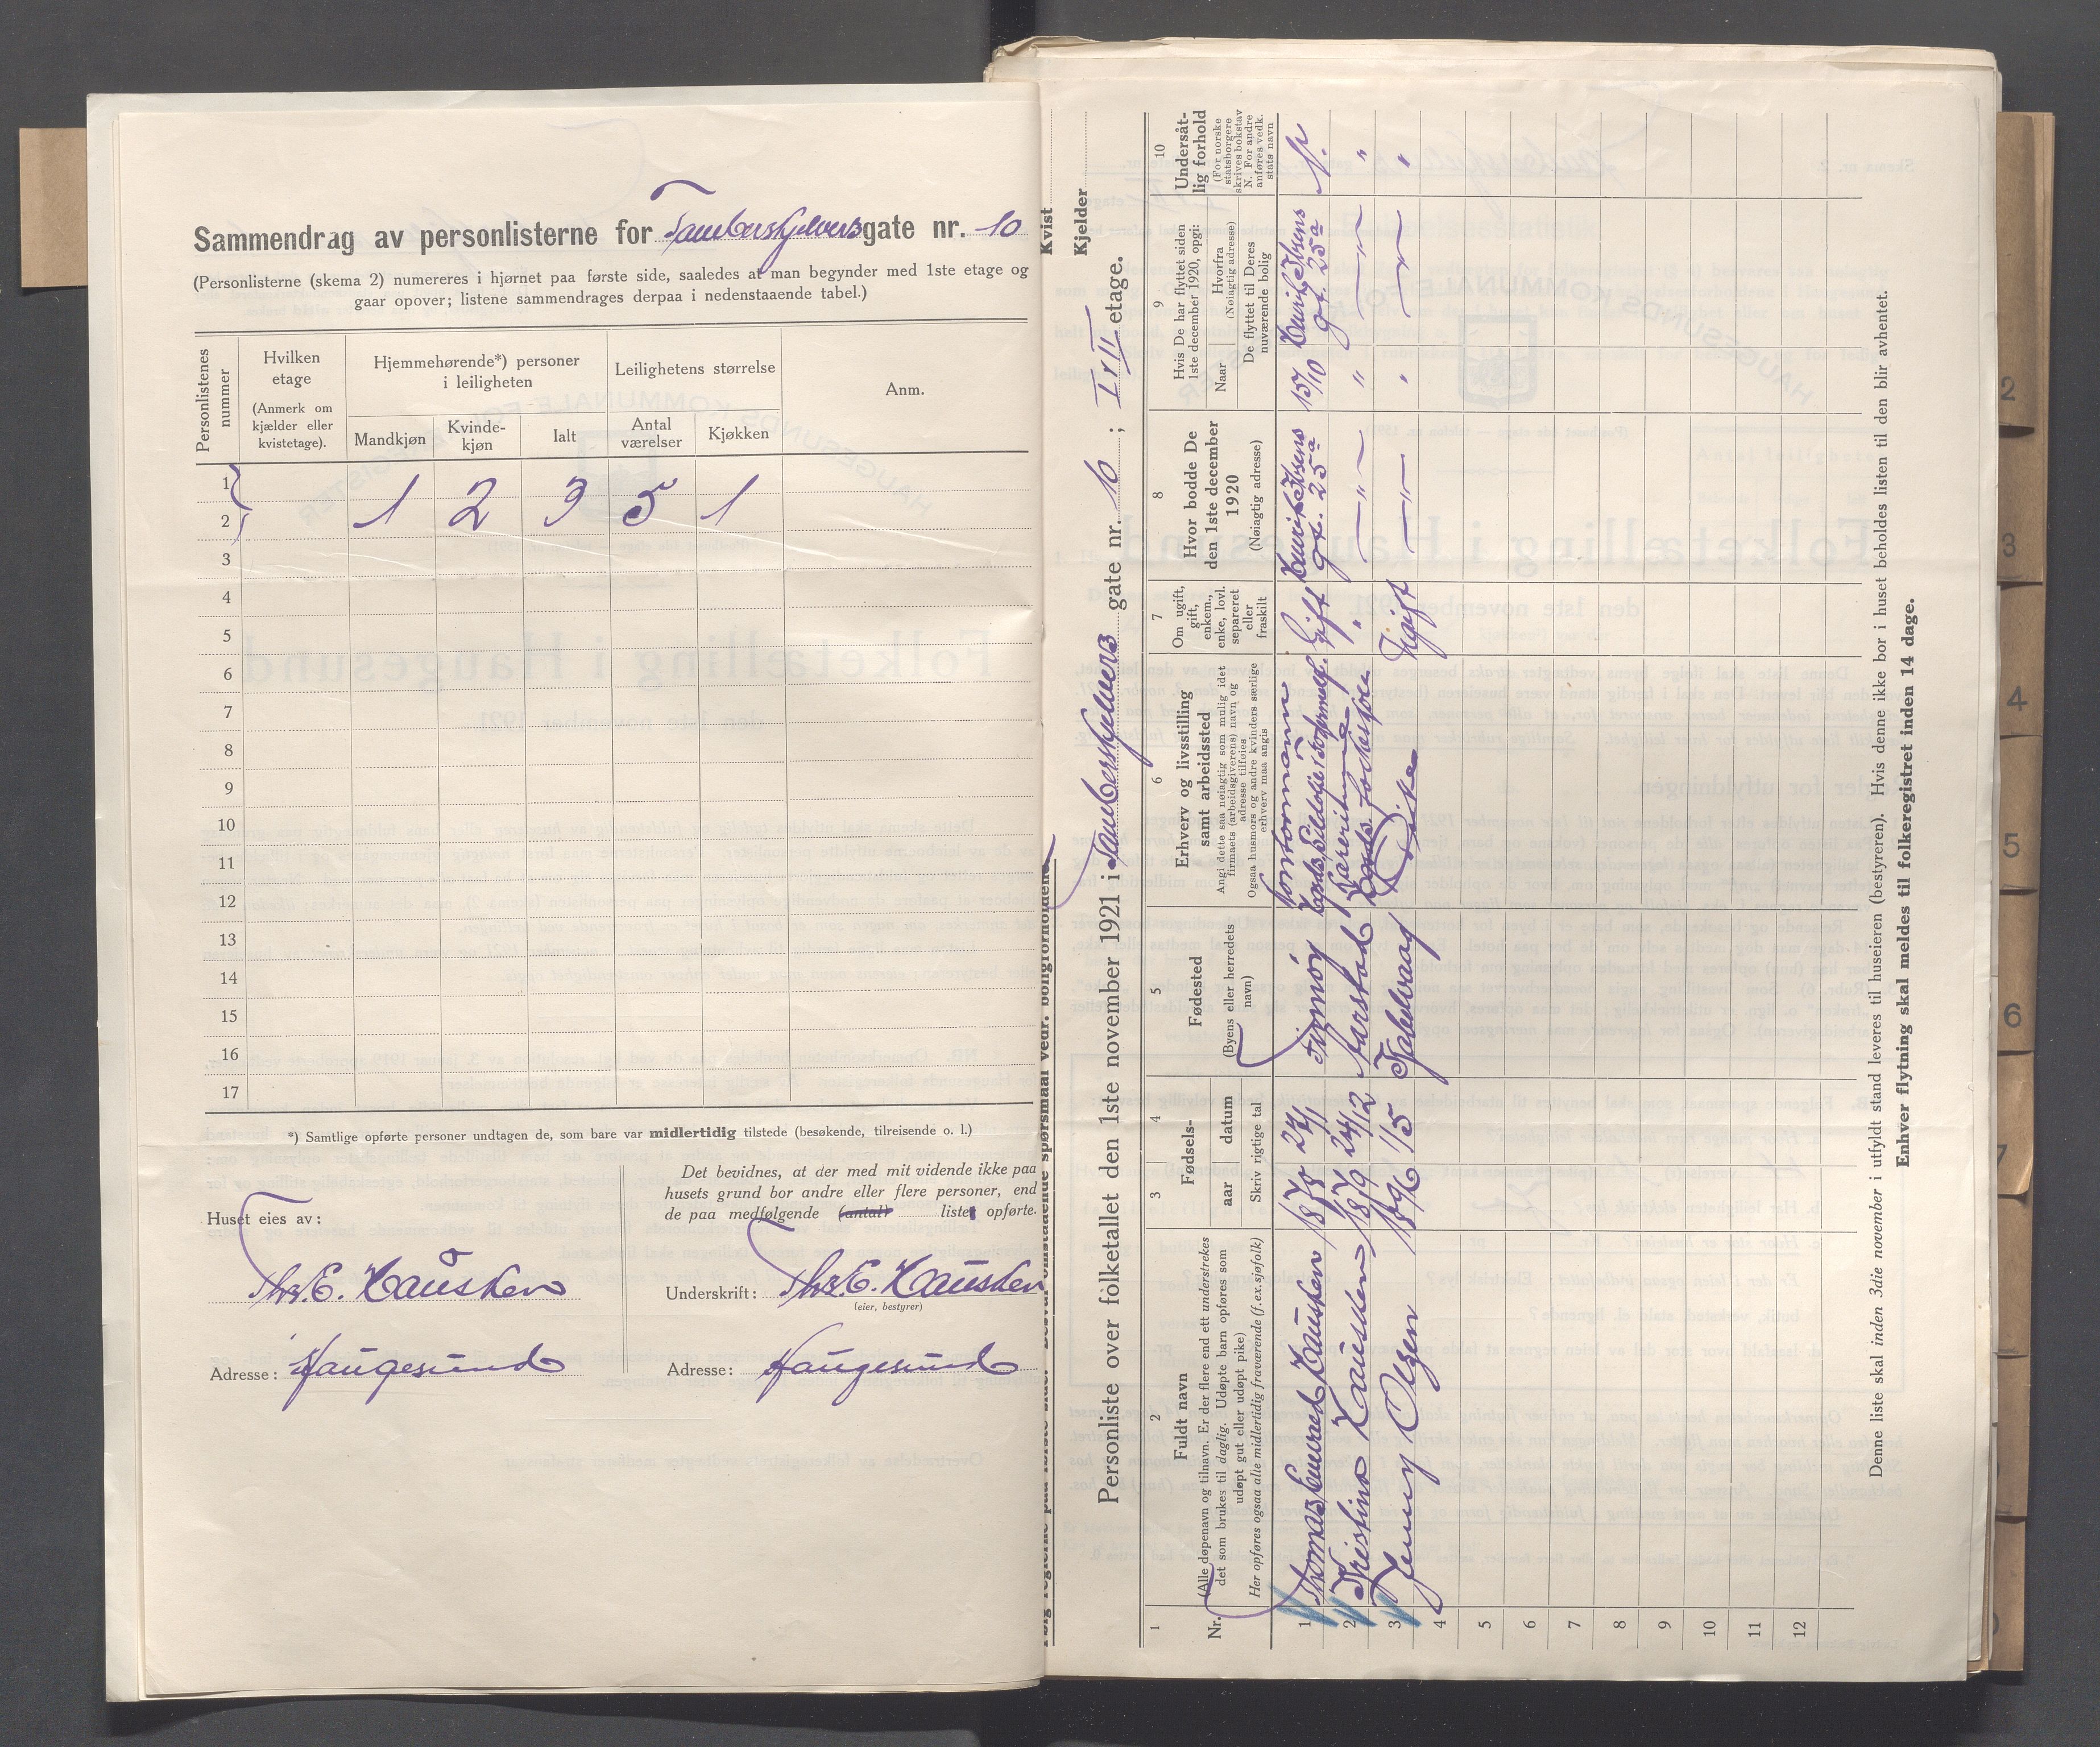 Sammendrag av personlisterne for Tambarskjelvers gate nr. 10
(Personlisterne (skema 2) numereres i hjørnet paa første side, saaledes at man begynder med 1ste etage og
gaar opover; listene sammendrages derpaa i nedenstaaende tabel.)
Personlistenes nummer
Hvilken etage
(Anmerk om kjælder eller kvistetage).
Hjemmehørende*) personer i leiligheten
Mandkjøn
Kvinde-kjøn
Ialt
Leilighetens størrelse
Antal værelser
Kjøkken
Anm.
1
2 1 2 3 5 1
3
4
5
6
7
8
9
10
11
12
13
14
15
16
17
*) Samtlige opførte personer undtagen de, som bare var midlertidig tilstede (besøkende, tilreisende o. l.)
Huset eies av:
Ths. E. Hausken
Adresse: Haugesund
Det bevidnes, at der med mit vidende ikke paa
husets grund bor andre eller flere personer, end
de paa medfølgende (antal) lister opførte.
Underskrift: Ths. E. Hausken
(eier, bestyrer)
Adresse: Haugesund
Kvist
Kjelder
Personliste over folketallet den 1ste november 1921 i Tambarskjelvers gate nr. 10; I & II etage.
1
Nr.
2
Fuldt navn
(Alle døpenavn og tilnavn. Er der flere end ett understrekes
det som brukes til daglig. Udøpte barn opføres som
udøpt gut eller udøpt pike)
Her opføres ogsaa alle midlertidig fraværende (f.ex.sjøfolk)
3 4
Fødsels-
aar datum
Skriv rigtige tal
5
Fødested
(Byens eller herredets navn)
6
Erhverv og livsstilling
samt arbeidssted
Angi dette saa nøiagtig som mulig idet
firmaets (arbeidsgiverens) navn og
adresse tilføies
Ogsaa husmors og andre kvinders særlige
erhverv maa angis
7
Om ugift,
gift,
enkem.,
enke, lovl.
separeret
eller
fraskilt
8
Hvor bodde De
den 1ste december
1920
(Nøiagtig adresse)
9
Hvis De har flyttet siden
1ste december 1920, opgi:
Naar
Hvorfra
(Nøiagtig adresse)
De flyttet til Deres
nuværende bolig
10
Undersåt-
lig forhold
(For norske
statsborgere
skrives bokstav
N. For andre
anføres vedk.
stats navn
1 Thomas Enevald Hausken 24/1 kontormann Gift Henrik Ibsens gt. 25a 15/10 Henrik Ibsens gt. 25a N.
2 Kristine Hausken 1879 24/12 Aarstad " — " — " — " — "
3 Jenny Olsen 1896 1/5 Ugift — " — " — " — "
4
5
6
7
8
9
10
11
12
Denne liste skal inden 3die november i utfyldt stand leveres til huseieren (bestyreren). Hvis denne ikke bor i huset beholdes listen til den blir avhentet.
Enhver flytning skal meldes til folkeregistret inden 14 dage.
2
3
4
5
6
7